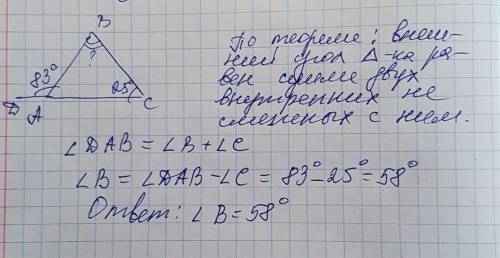 B
?
83°
25°
D
A
C
По теореме: внеш-
ний угол Δ-ка ра-
вен сумме двух
внутренних не
смежных с ним.
∠DAB = ∠B + ∠C
∠B = ∠DAB - ∠C = 83° - 25° = 58°
Ответ: ∠B = 58°